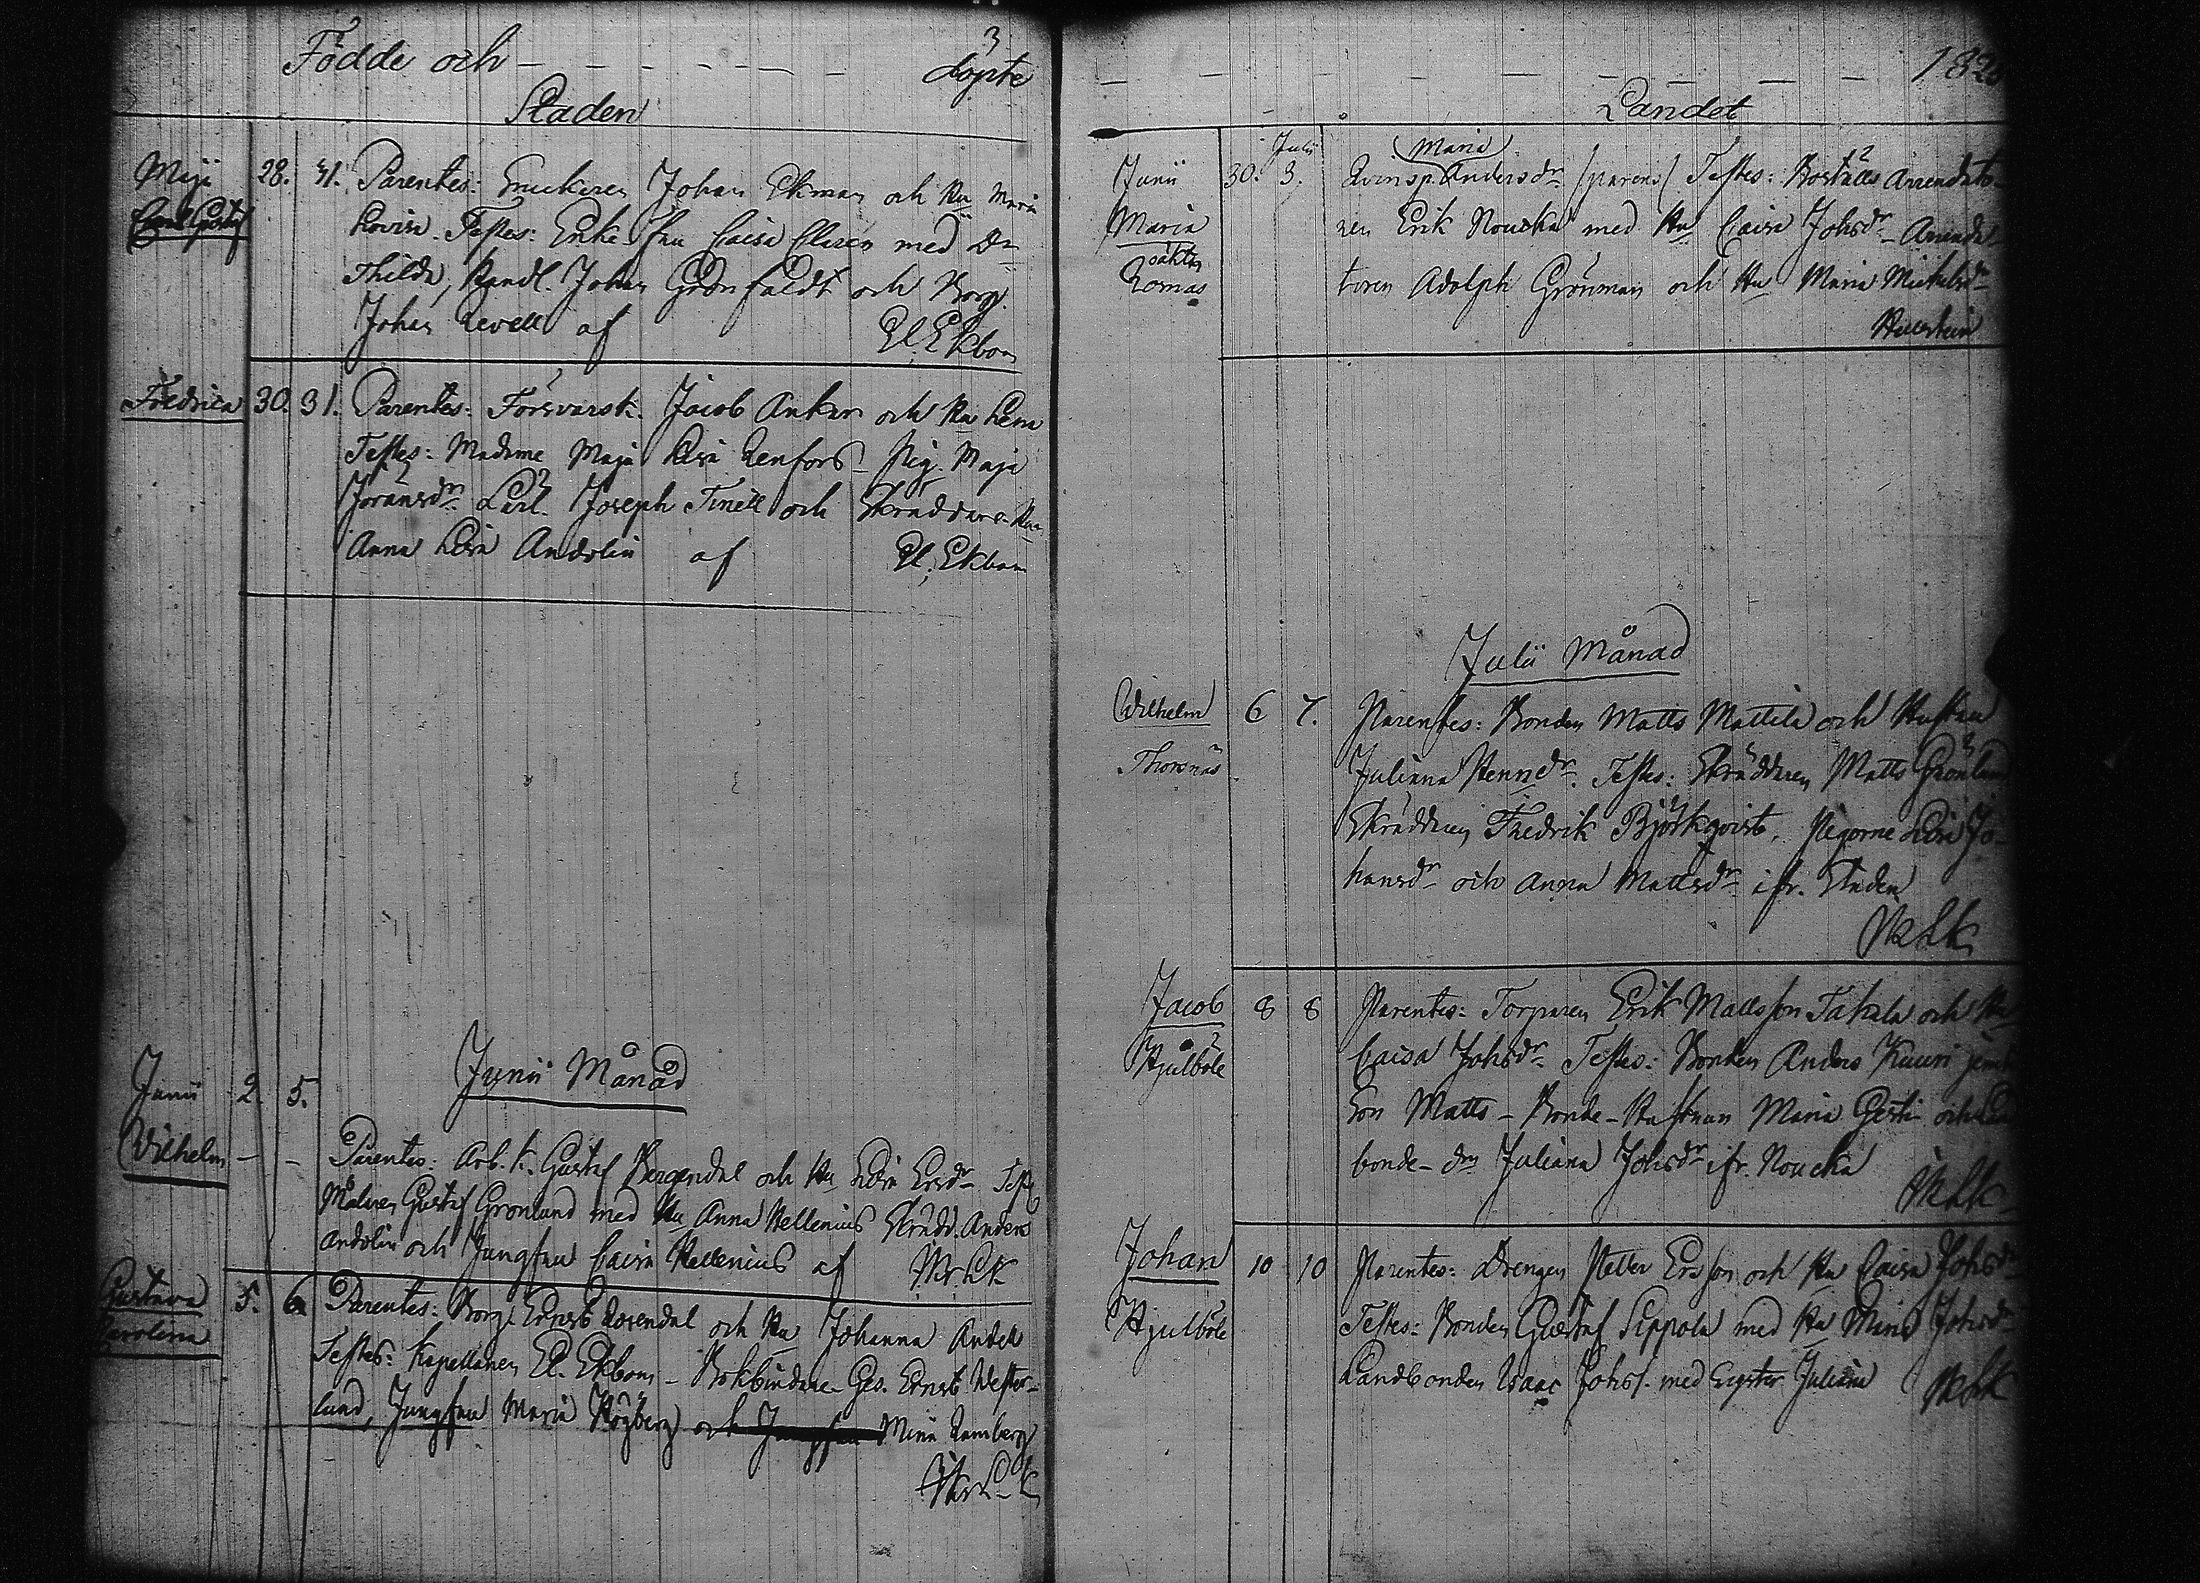 3
Födde och döpte
Staden
Maji 28. 31. Parentes: Snickaren Johan Ekman och Hu Maria
Carl Gustaf Lovisa. Testes: Enke-Fru Caisa Clasén med Dr
Thilda, Handl. Johan Grönfaldt och Borg.
Johan Levell af El. Ekbom
Fredrica 30. 31. Parentes: Försvarsk. Jacob Ankar och Hu Lena
Testes: Madame Maja Lisa Renfors – Pig. Maja
Joransdr Lärl. Joseph Tinell och Skraddare-Hu
Anna Lisa Andolin af El. Ekbom
Junii Månad
Junii 2. 5.
Wilhelm – – Parentes: Arb.k. Gustaf Bergendal och Hu Lisa Ersdr Test
Målaren Gustaf Grönlund med Hu Anna Hellenius Skrädd. Anders
Andolin och Jungfru Caisa Hellenius af
Gustava 5. 6. Parentes: Borg. Ernst Rosendal och Hu Johanna
Carolina Testes: Kapellanen El. Ekbom – Bokbindare-Ges. Ernst Wester-
lund, Jungfru Maria Högberg och Jungfru Mina Ramberg
182
Landet
Julii Maria
Junii 30. 3. Qvinsp. Andersdr /parens/ Testes: Boställs Arrendato-
Maria ren Erik Noucka med Hu Caisa Johsdr – Arrenda-
oäkta toren Adolph Grönman och Hu Maria Michelsdr
Romas
Julii Månad
Wilhelm 6 7. Parentes: Bonden Matts Mattila och Hustru
Thorsnäs Juliana Henricdr. Testes: Skräddaren Matts Grönlund
Skräddaren Fredrik Björkqvist, Pigorne Lisa Jo-
hansdr och Anna Mattsdr ifr. Staden
Jacob 8 8 Parentes: Torparen Erik Matsson Takala och Hu
Hjulböle Caisa Johsdr Testes: Bonden Anders Kuuri jemte
Son Matts – Bonde-Hustrun Maria Gesti och Land
bonde-dn Juliana Johsdr ifr. Noucka
Johan 10 10 Parentes: Drengen Petter Ersson och Hu Caisa Johsdr
Hjulböle Testes: Bonden Gustaf Seppola med Hu Maria Johsdr
Landbonden Isaac Johss. med Syster Juliana